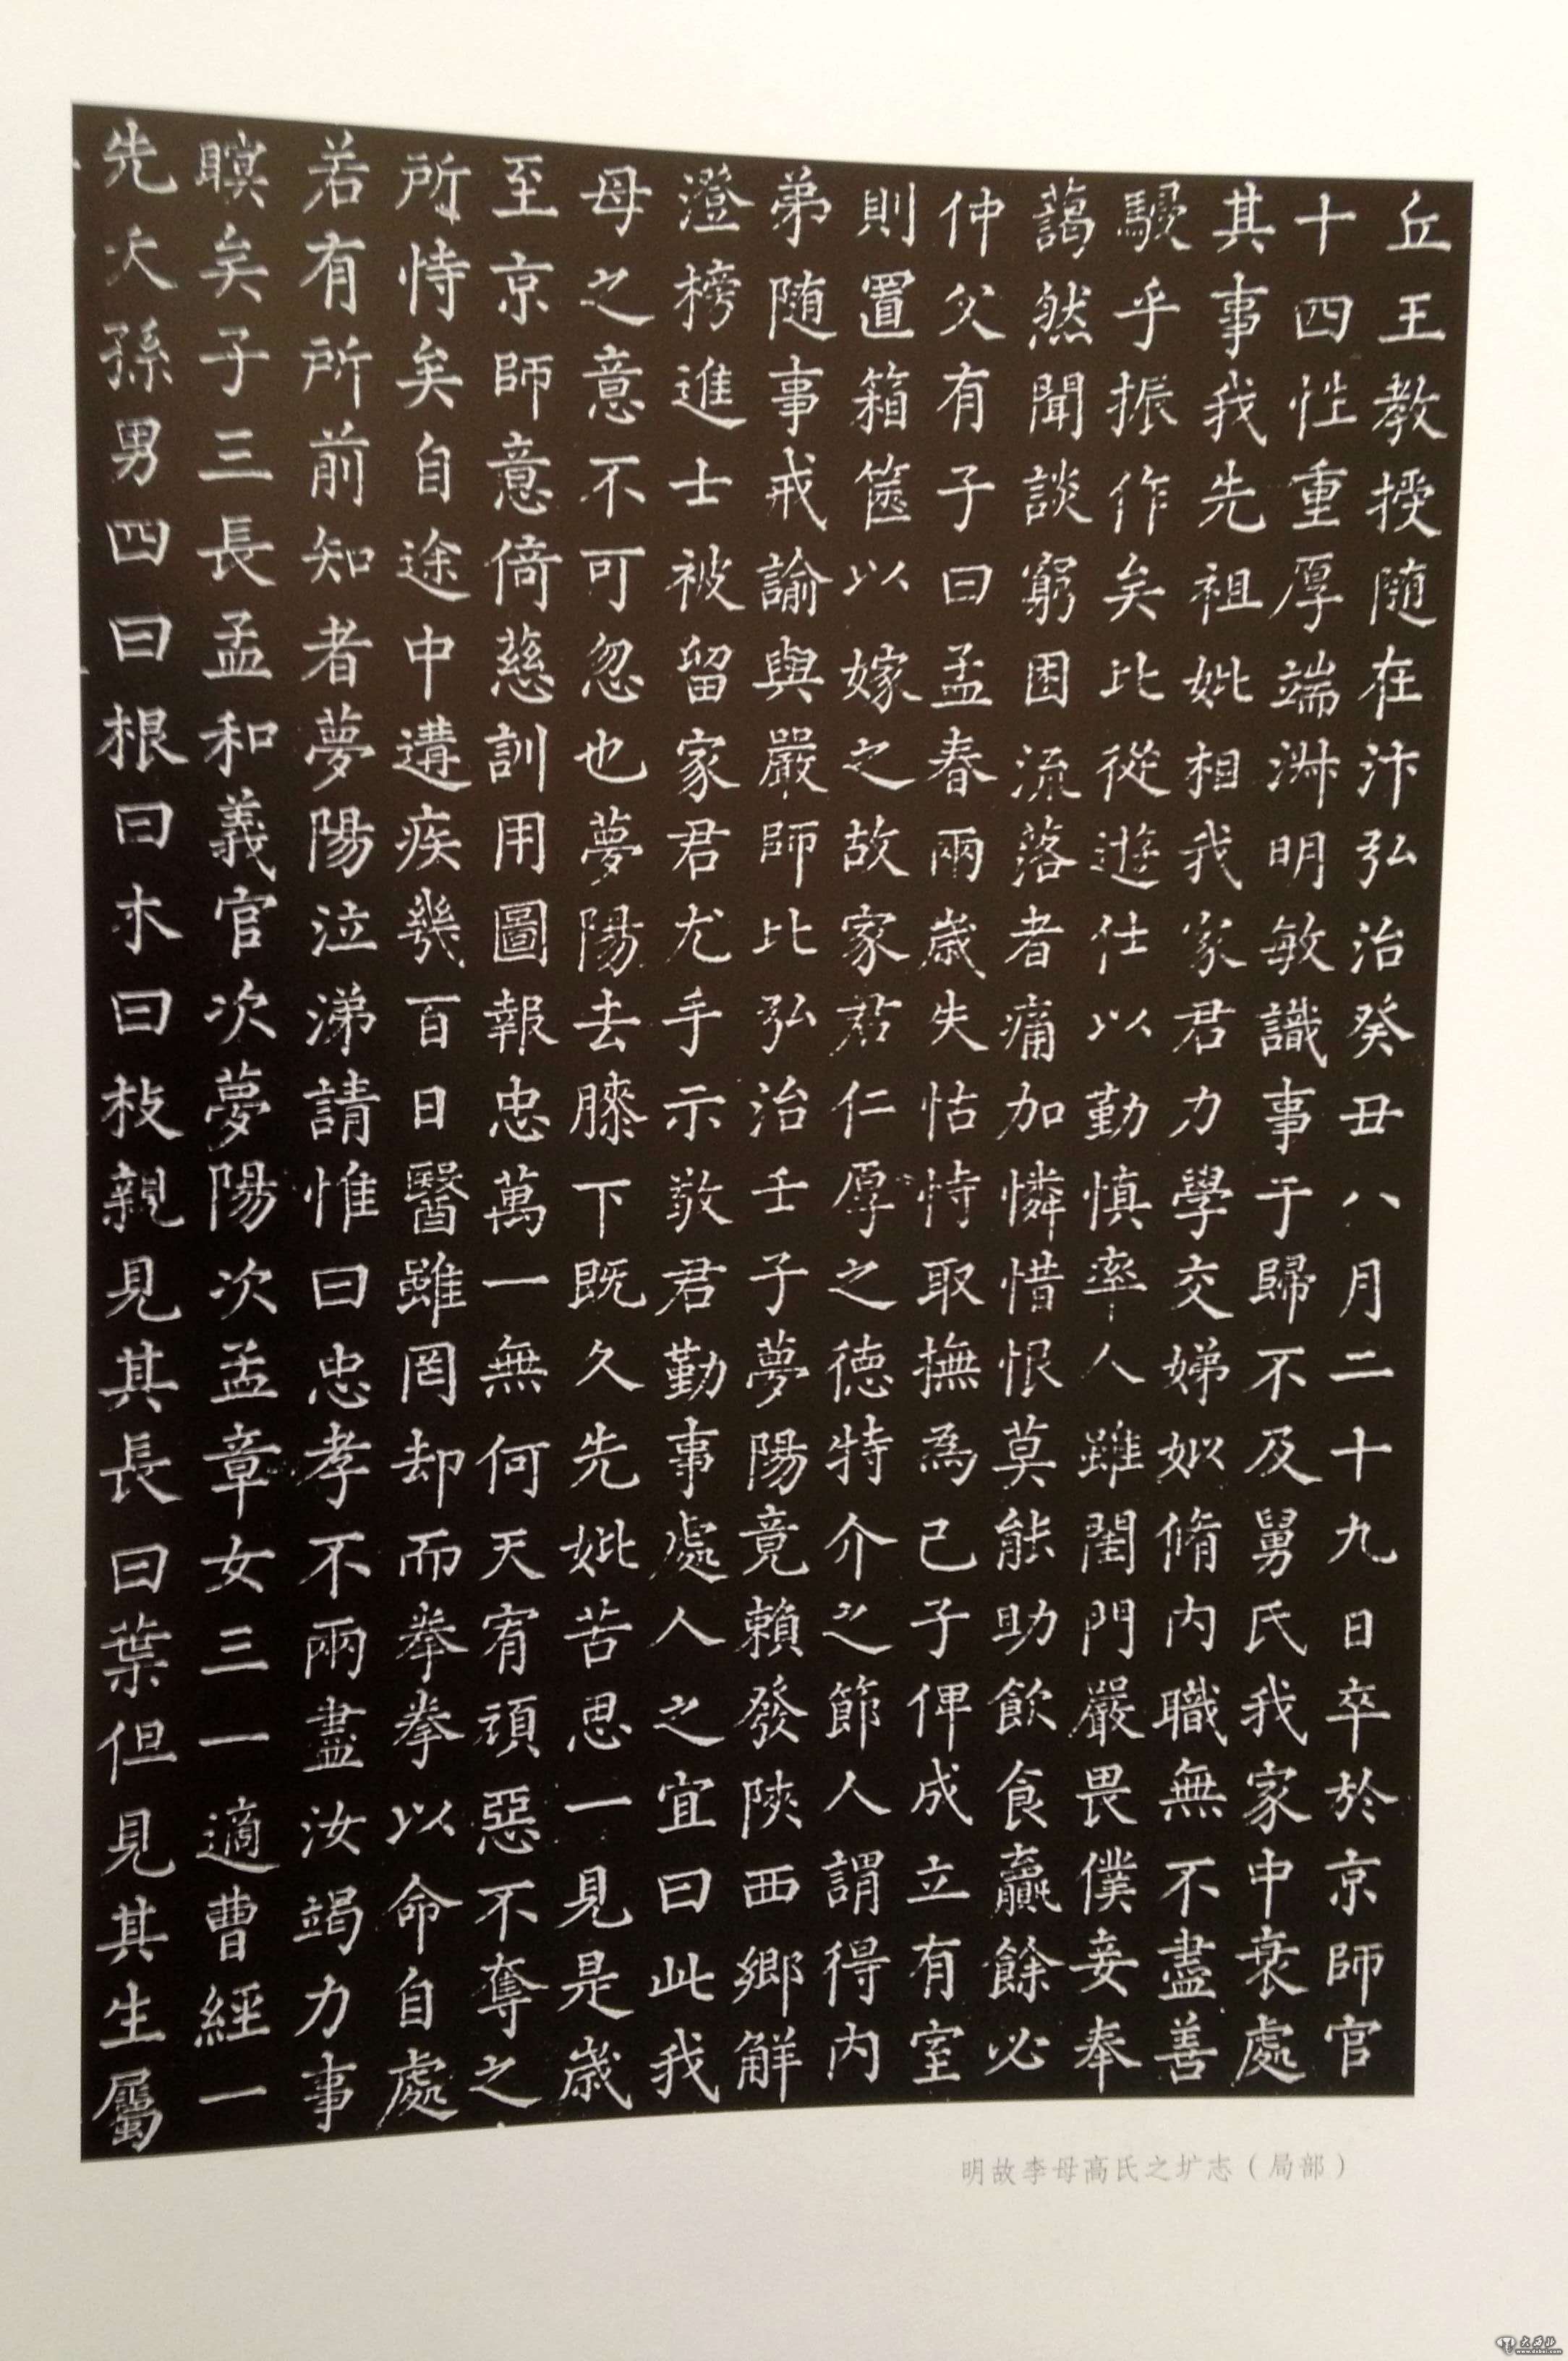 丘王教授随在汴弘治癸丑八月二十九日卒於京師官
十四性重厚端淋明敏識事于歸不及舅氏我家中衰處
其事我先祖妣相我家君力學交娣姒脩内職無不盡善
駸乎振作矣比從遊仕以勤慎率人雖閨門嚴畏僕妾奉
藹然聞談窮困流落者痛加憐惜恨莫能助飲食贏餘必
仲父有子曰孟春兩歲失怙恃取撫為己子俾成立有室
則置箱篋以嫁之故家君仁厚之德特介之節人謂得内
弟随事戒諭與嚴師比弘治壬子夢陽竟賴發陝西鄉解
澄榜進士被留家君尤手示敬君勤事處人之宜曰此我
母之意不可忽也夢陽去膝下既久先妣苦思一見是歲
至京師意倚慈訓用圖報忠萬一無何天宥頑惡不奪之
所恃矣自途中遘疾幾百日醫雖罔却而拳拳以命自處
若有所前知者夢陽泣涕請惟曰忠孝不兩盡汝竭力事
瞑矣子三長孟和義官次夢陽次孟章女三一適曹經一
先夭孫男四曰根曰木曰枝親見其長曰葉但見其生屬
明故李母高氏之圹志（局部）
大西北
www.dxbei.com